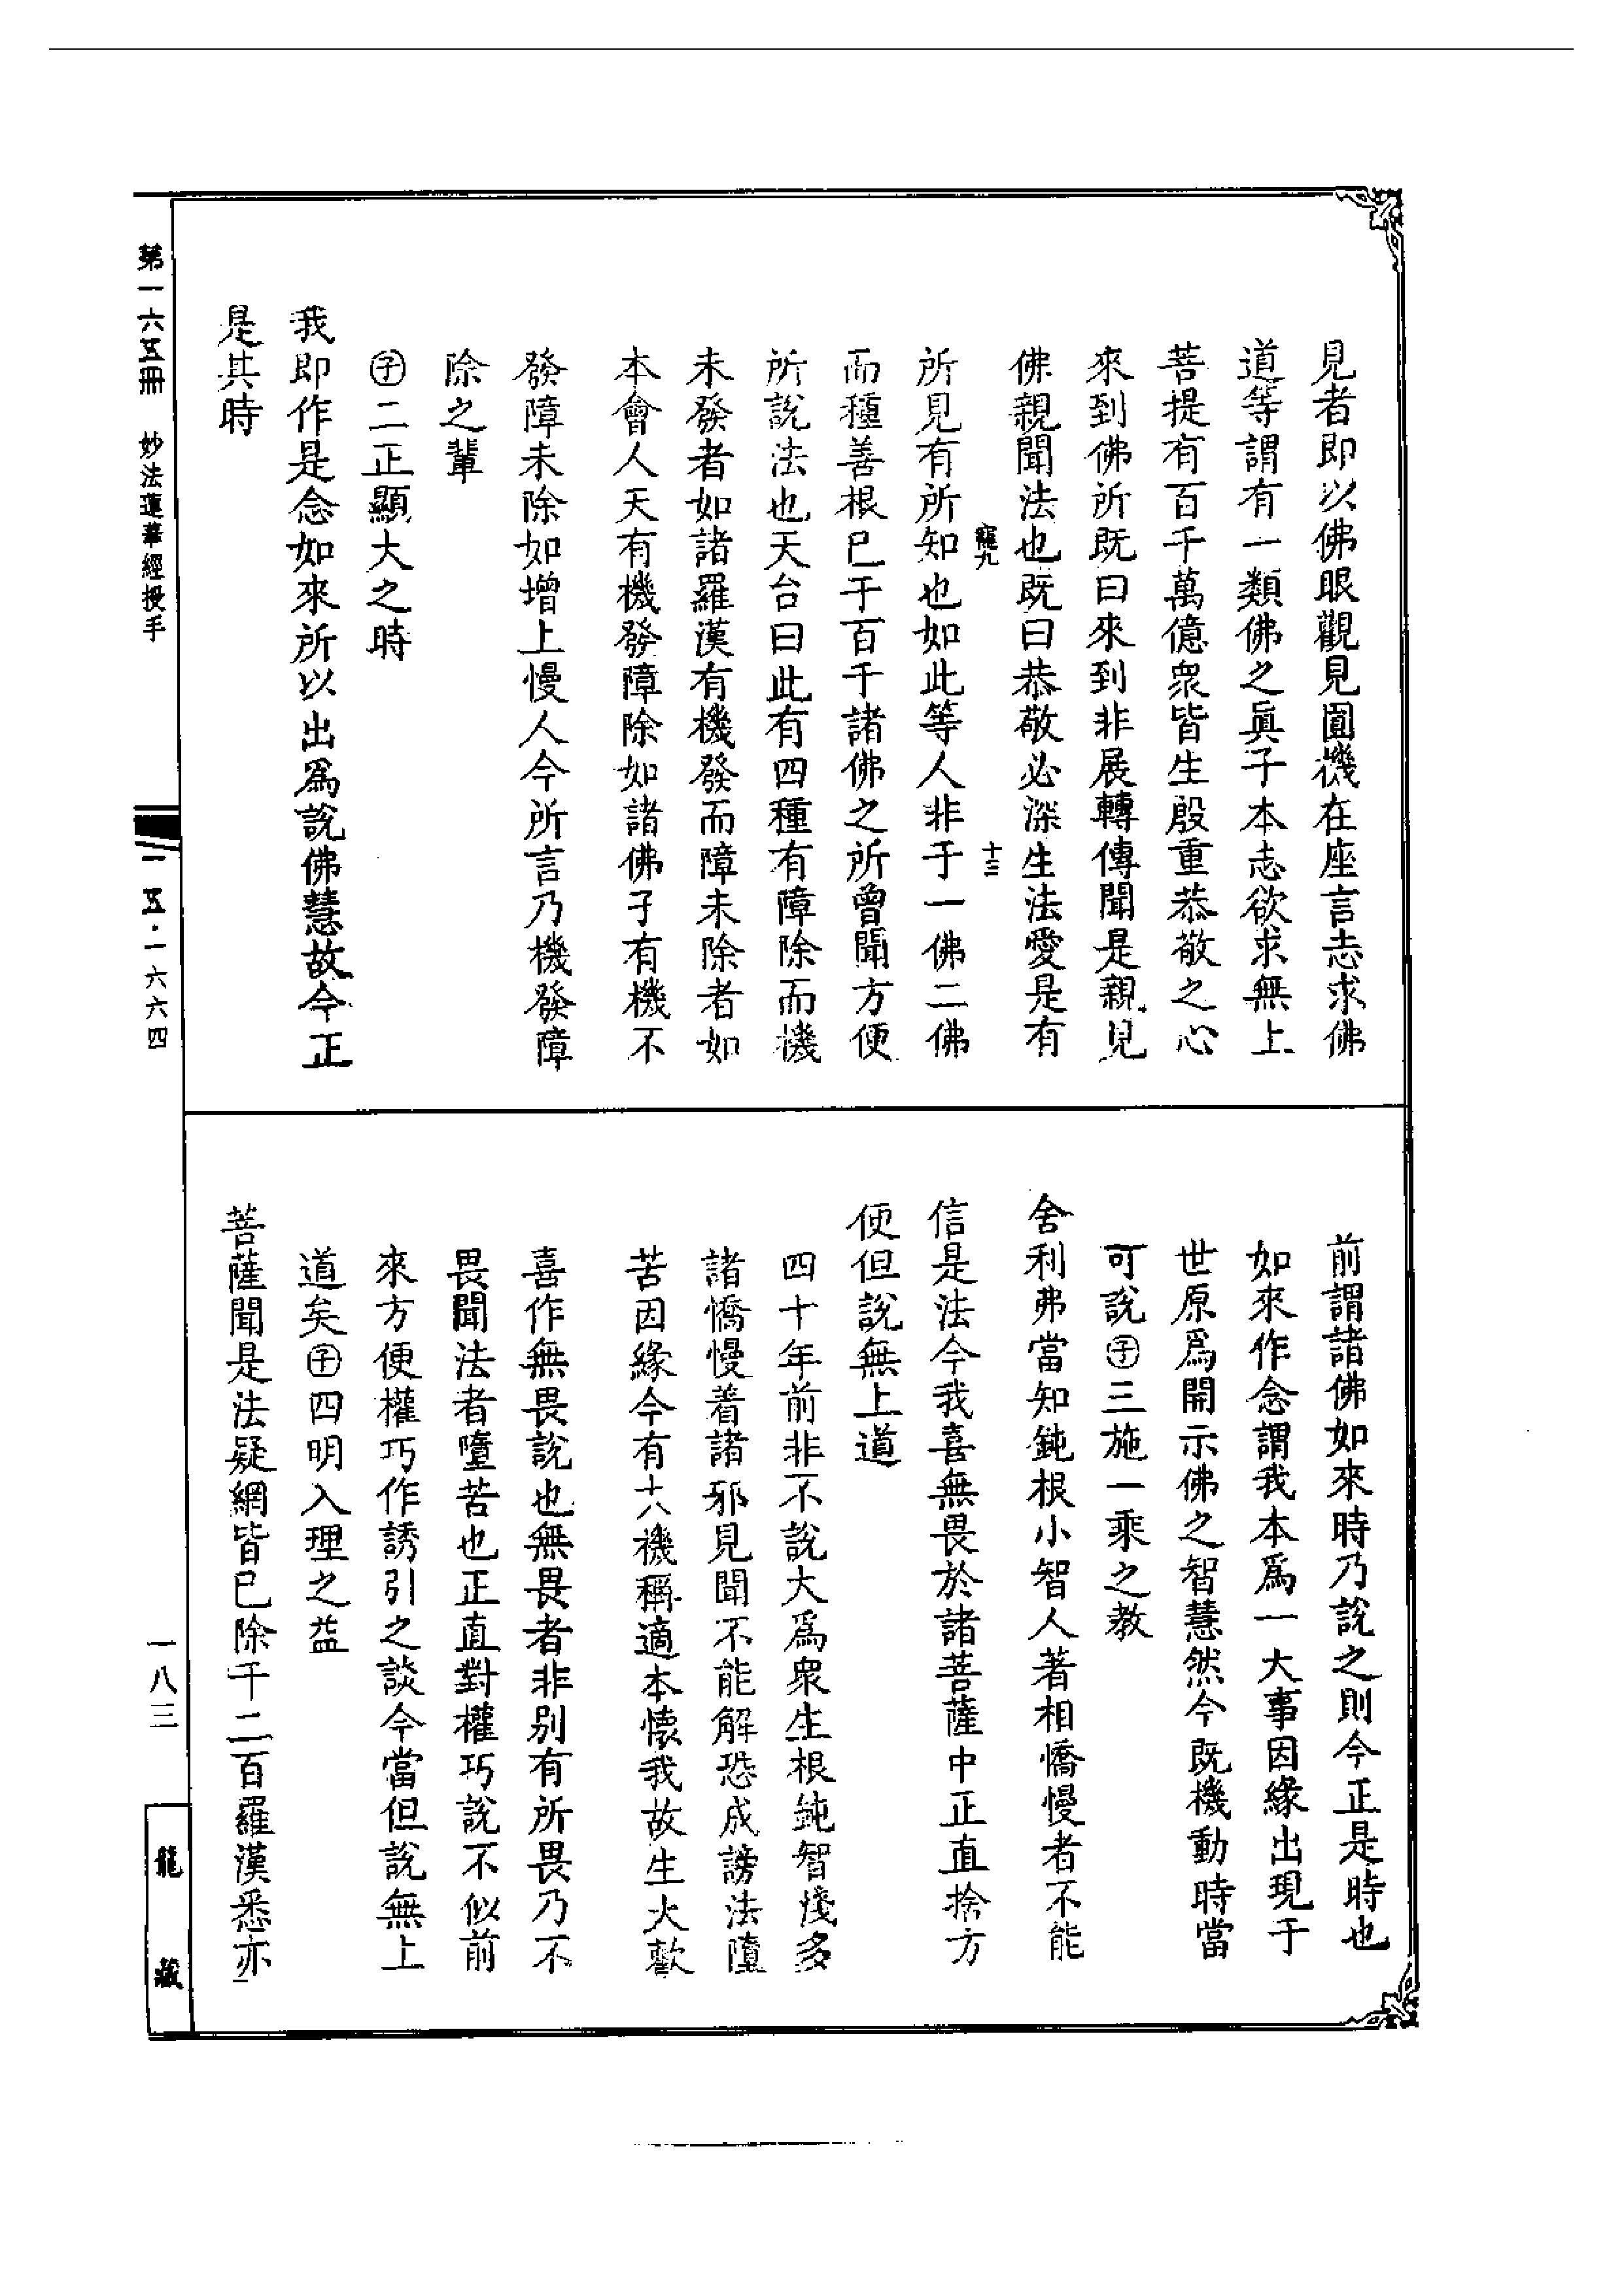 見者即以佛眼觀見圓機在座言志求佛
道等謂有一類佛之眞子本志欲求無上
菩提有百千萬億衆皆生殷重恭敬之心
來到佛所既曰來到非展轉傳聞是親見
佛親聞法也既曰恭敬必深生法愛是有
十三
所見有所知也如此等人非于一佛二佛
而種善根已于百千諸佛之所曾聞方便
所說法也天台曰此有四種有障除而機
未發者如諸羅漢有機發而障未除者如
本會人天有機發障除如諸佛子有機不
發障未除如增上慢人今所言乃機發障
除之輩
㊉二正顯大之時
我即作是念如來所以出爲說佛慧故今正
是其時
前謂諸佛如來時乃說之則今正是時也
如來作念謂我本爲一大事因緣出現于
世原爲開示佛之智慧然今既機動時當
可說㊉三施一乘之教
舍利弗當知鈍根小智人著相憍慢者不能
信是法今我喜無畏於諸菩薩中正直捨方
便但說無上道
四十年前非不說大爲衆生根鈍智淺多
諸憍慢着諸邪見聞不能解恐成謗法墮
苦因緣今有大機稱適本懷我故生大歡
喜作無畏說也無畏者非别有所畏乃不
畏聞法者墮苦也正直對權巧說不似前
來方便權巧作誘引之談今當但說無上
道矣㊉四明入理之益
菩薩聞是法疑網皆已除千二百羅漢悉亦
第一六五冊 妙法蓮華經授手
一五·一六六四
一八三
龍藏